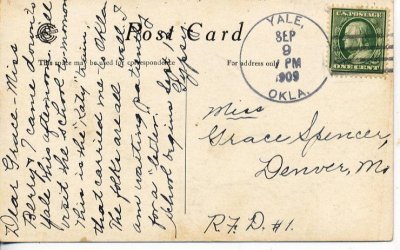 Post Card
This space may be used for correspondence
For address only
YALE,
SEP
9
PM
1909
OKLA.
U.S. POSTAGE
ONE CENT
Dear Grace - Miss
Berry & I came down to
Yale this afternoon. Will
visit the school tomorrow
This is the "Katy" train,
that carried me to Okla.
The folks are all well. I
am waiting patiently
for a "letter".
School begins Sept. 1
Gypsy
Miss
Grace Spencer,
Denver, Mo
R.F.D. #1.